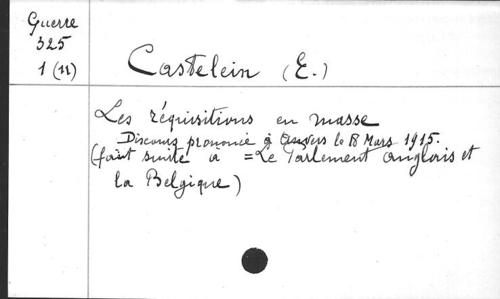 Guerre
325
1 (11)
Castelein (E.)
Les réquisitions en masse
Discours prononcé à Anvers le 18 Mars 1915.
(fait suite à = Le Parlement anglais et
la Belgique)